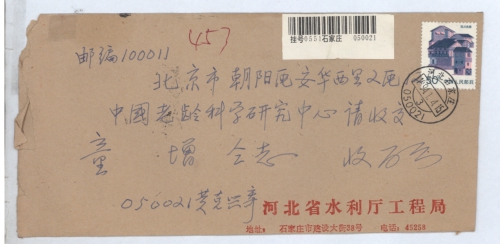 挂号0551石家庄 050021
457
邮编100011
50
北京市朝阳区安华西里又区
中国老龄科学研究中心请收交
童增 仝志 收
050021 黄克兰寄
河北省水利厅工程局
地址: 石家庄市建设大街28号 电话: 45258